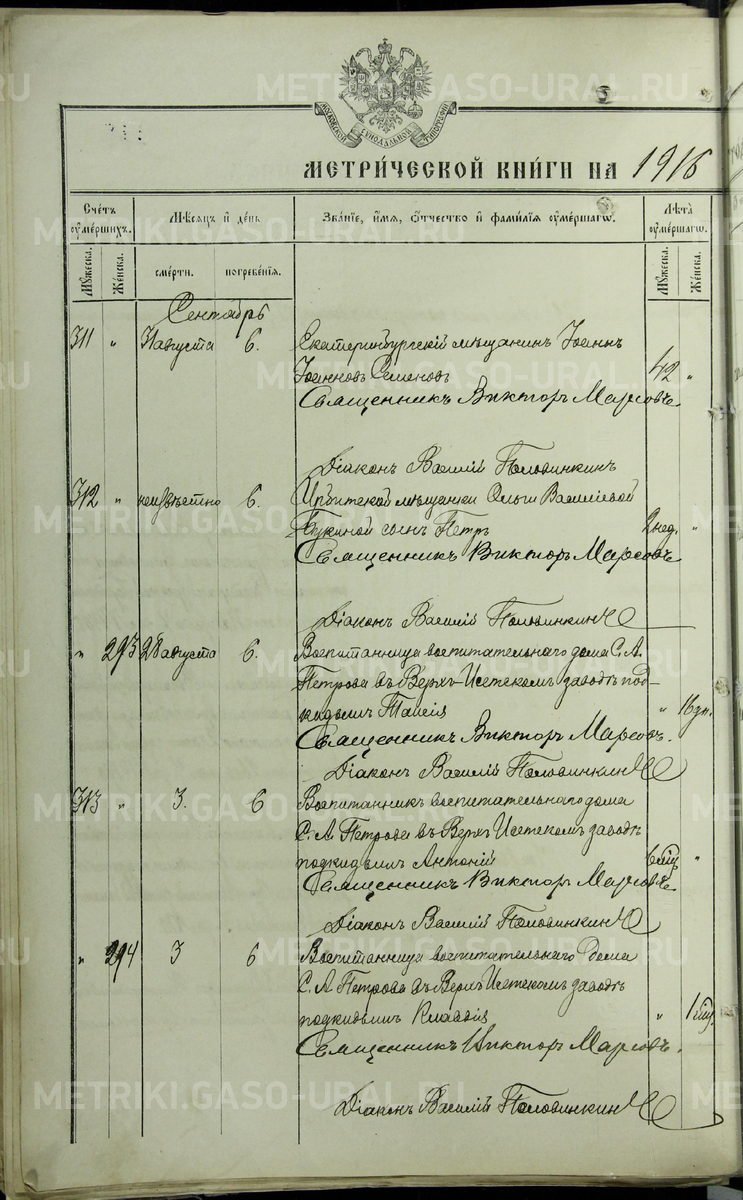 METRIKI.GASO-URAL.RU
МОСКОВСКОЙ СѴНОДАЛЬНОЙ ТИПОГРАФІИ
МЕТРИ́ЧЕСКОЙ КНИ́ГИ НА 1916
Сче́тъ ᲂу҆ме́ршихъ.
Мꙋ́жеска.
Же́нска.
Мѣ́сѧцъ и҆ де́нь
сме́рти.
погребе́нїѧ.
Зва́нїе, и҆́мѧ, ѻ҆́тчество и҆ фами́лїѧ ᲂу҆ме́ршагѡ.
Лѣ́та ᲂу҆ме́ршагѡ.
Мꙋ́жеска.
Же́нска.
Сентябрь
311 " 31 августа 6. Екатеринбургскій мѣщанинъ Іоаннъ
Іоанновъ Семеновъ 42 "
Священникъ Викторъ Марсовъ.
Діаконъ Василій Половинкинъ
312 " неизвѣстно 6. Ирбитской мѣщанки Ольги Василіевой
сынъ Петръ 2 нед. "
Священникъ Викторъ Марсовъ
Діаконъ Василій Половинкинъ
" 293 28 августа 6. Воспитанница воспитательнаго дома С. А.
Петрова въ Верхъ-Исетскомъ заводѣ под-
кидышъ Таисія " 16 дн.
Священникъ Викторъ Марсовъ.
Діаконъ Василій Половинкинъ
313 " 3. 6 Воспитанникъ воспитательнаго дома
С. А. Петрова въ Верхъ Исетскомъ заводѣ
подкидышъ Антоній "
Священникъ Викторъ Марсовъ
Діаконъ Василій Половинкинъ
" 294 3 6 Воспитанница воспитательнаго Дома
С. А. Петрова въ Верхъ Исетскомъ заводѣ
подкидышъ Клавдія " 1 мѣс.
Священникъ Викторъ Марсовъ.
Діаконъ Василій Половинкинъ